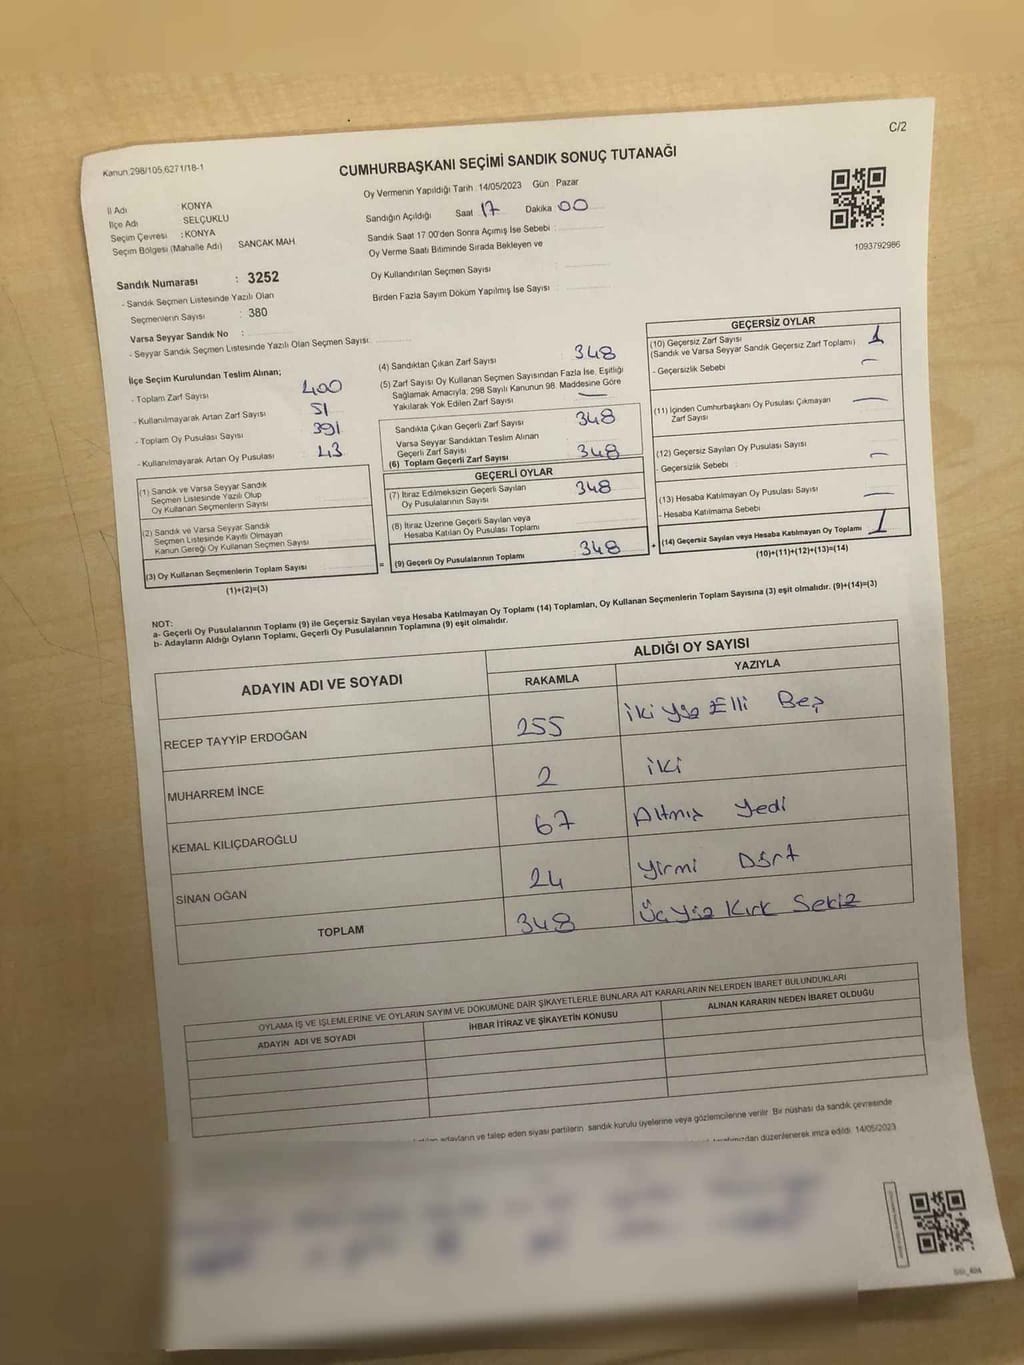 C/2
Kanun.298/105,6271/18-1
CUMHURBAŞKANI SEÇİMİ SANDIK SONUÇ TUTANAĞI
Oy Vermenin Yapıldığı Tarih : 14/05/2023 Gün : Pazar
İl Adı : KONYA
İlçe Adı : SELÇUKLU
Seçim Çevresi : KONYA
Seçim Bölgesi (Mahalle Adı) SANCAK MAH
Sandığın Açıldığı Saat 17 Dakika 00
Sandık Saat 17:00'den Sonra Açımış İse Sebebi :
Oy Verme Saati Bitiminde Sırada Bekleyen ve
Oy Kullandırılan Seçmen Sayısı :
Birden Fazla Sayım Döküm Yapılmış İse Sayısı :
1093792986
Sandık Numarası : 3252
- Sandık Seçmen Listesinde Yazılı Olan
Seçmenlerin Sayısı : 380
Varsa Seyyar Sandık No :
- Seyyar Sandık Seçmen Listesinde Yazılı Olan Seçmen Sayısı:
İlçe Seçim Kurulundan Teslim Alınan;
- Toplam Zarf Sayısı 400
- Kullanılmayarak Artan Zarf Sayısı 51
- Toplam Oy Pusulası Sayısı 391
- Kullanılmayarak Artan Oy Pusulası 43
(1) Sandık ve Varsa Seyyar Sandık
Seçmen Listesinde Yazılı Olup
Oy Kullanan Seçmenlerin Sayısı
(2) Sandık ve Varsa Seyyar Sandık
Seçmen Listesinde Kayıtlı Olmayan
Kanun Gereği Oy Kullanan Seçmen Sayısı
(3) Oy Kullanan Seçmenlerin Toplam Sayısı
(1)+(2)=(3)
(4) Sandıktan Çıkan Zarf Sayısı 348
(5) Zarf Sayısı Oy Kullanan Seçmen Sayısından Fazla İse, Eşitliği
Sağlamak Amacıyla; 298 Sayılı Kanunun 98. Maddesine Göre
Yakılarak Yok Edilen Zarf Sayısı —
Sandıkta Çıkan Geçerli Zarf Sayısı 348
Varsa Seyyar Sandıktan Teslim Alınan
Geçerli Zarf Sayısı
(6) Toplam Geçerli Zarf Sayısı 348
GEÇERLİ OYLAR
(7) İtiraz Edilmeksizin Geçerli Sayılan
Oy Pusulalarının Sayısı 348
(8) İtiraz Üzerine Geçerli Sayılan veya
Hesaba Katılan Oy Pusulası Toplamı
= (9) Geçerli Oy Pusulalarının Toplamı 348
GEÇERSİZ OYLAR
(10) Geçersiz Zarf Sayısı
(Sandık ve Varsa Seyyar Sandık Geçersiz Zarf Toplamı) 1
- Geçersizlik Sebebi : —
(11) İçinden Cumhurbaşkanı Oy Pusulası Çıkmayan
Zarf Sayısı —
(12) Geçersiz Sayılan Oy Pusulası Sayısı
- Geçersizlik Sebebi : —
(13) Hesaba Katılmayan Oy Pusulası Sayısı —
- Hesaba Katılmama Sebebi
+ (14) Geçersiz Sayılan veya Hesaba Katılmayan Oy Toplamı 1
(10)+(11)+(12)+(13)=(14)
NOT:
a- Geçerli Oy Pusulalarının Toplamı (9) ile Geçersiz Sayılan veya Hesaba Katılmayan Oy Toplamı (14) Toplamları, Oy Kullanan Seçmenlerin Toplam Sayısına (3) eşit olmalıdır. (9)+(14)=(3)
b- Adayların Aldığı Oyların Toplamı, Geçerli Oy Pusulalarının Toplamına (9) eşit olmalıdır.
ADAYIN ADI VE SOYADI ALDIĞI OY SAYISI
RAKAMLA YAZIYLA
RECEP TAYYİP ERDOĞAN 255 İki Yüz Elli Beş
MUHARREM İNCE 2 İki
KEMAL KILIÇDAROĞLU 67 Altmış Yedi
SİNAN OĞAN 24 Yirmi Dört
TOPLAM 348 Üç Yüz Kırk Sekiz
OYLAMA İŞ VE İŞLEMLERİNE VE OYLARIN SAYIM VE DÖKÜMÜNE DAİR ŞİKAYETLERLE BUNLARA AİT KARARLARIN NELERDEN İBARET BULUNDUKLARI
ADAYIN ADI VE SOYADI İHBAR İTİRAZ VE ŞİKAYETİN KONUSU ALINAN KARARIN NEDEN İBARET OLDUĞU
adayların ve talep eden siyasi partilerin sandık kurulu üyelerine veya gözlemcilerine verilir. Bir nüshası da sandık çevresinde
düzenlenerek imza edildi. 14/05/2023